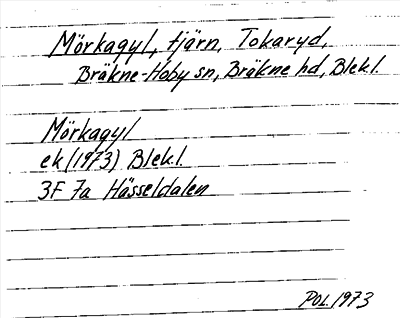 Mörkagyl, tjärn, Tokaryd,
Bräkne-Hoby sn, Bräkne hd, Blekl.
Mörkagyl
ek (1973) Blekl.
3F 7a Hässeldalen
POL 1973